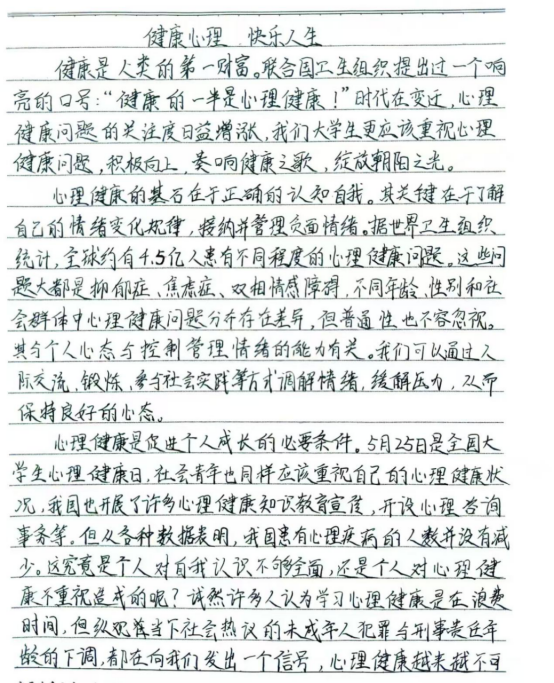 健康心理 快乐人生
健康是人类的第一财富。联合国卫生组织提出过一个响
亮的口号:“健康的一半是心理健康!”时代在变迁,心理
健康问题的关注度日益增涨,我们大学生更应该重视心理
健康问题,积极向上,奏响健康之歌,绽放朝阳之光。
心理健康的基石在于正确的认知自我。其关键在于了解
自己的情绪变化规律,接纳并管理负面情绪。据世界卫生组织
统计,全球约有4.5亿人患有不同程度的心理健康问题。这些问
题大都是抑郁症、焦虑症、双相情感障碍,不同年龄、性别和社
会群体中心理健康问题分布存在差异,但普遍性也不容忽视。
其与个人心态与控制管理情绪的能力有关。我们可以通过人
际交流、锻炼、参与社会实践等方式调解情绪,缓解压力,从而
保持良好的心态。
心理健康是促进个人成长的必要条件。5月25日是全国大
学生心理健康日,社会青年也同样应该重视自己的心理健康状
况,我国也开展了许多心理健康知识教育宣传,开设心理咨询
事务等。但从各种数据表明,我国患有心理疾病的人数并没有减
少。这究竟是个人对自我认识不够全面,还是个人对心理健
康不重视造成的呢?诚然许多人认为学习心理健康是在浪费
时间,但纵观当下社会热议的未成年人犯罪与刑事责任年
龄的下调,都在向我们发出一个信号,心理健康越来越不可